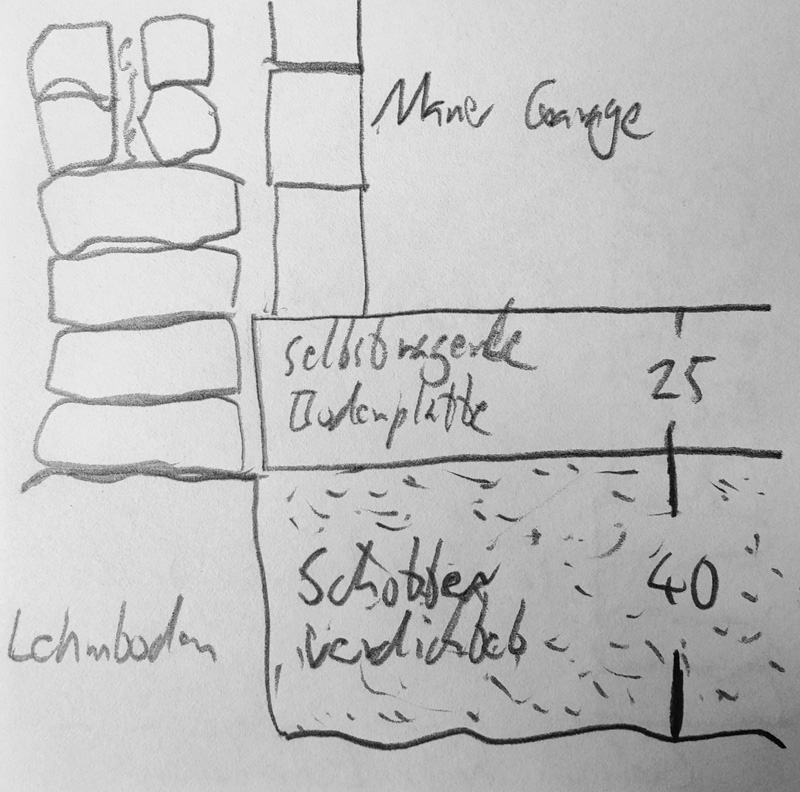 Mauer Garage
selbsttragende
Bodenplatte
25
Schotter
verdichtet
40
Lehmboden